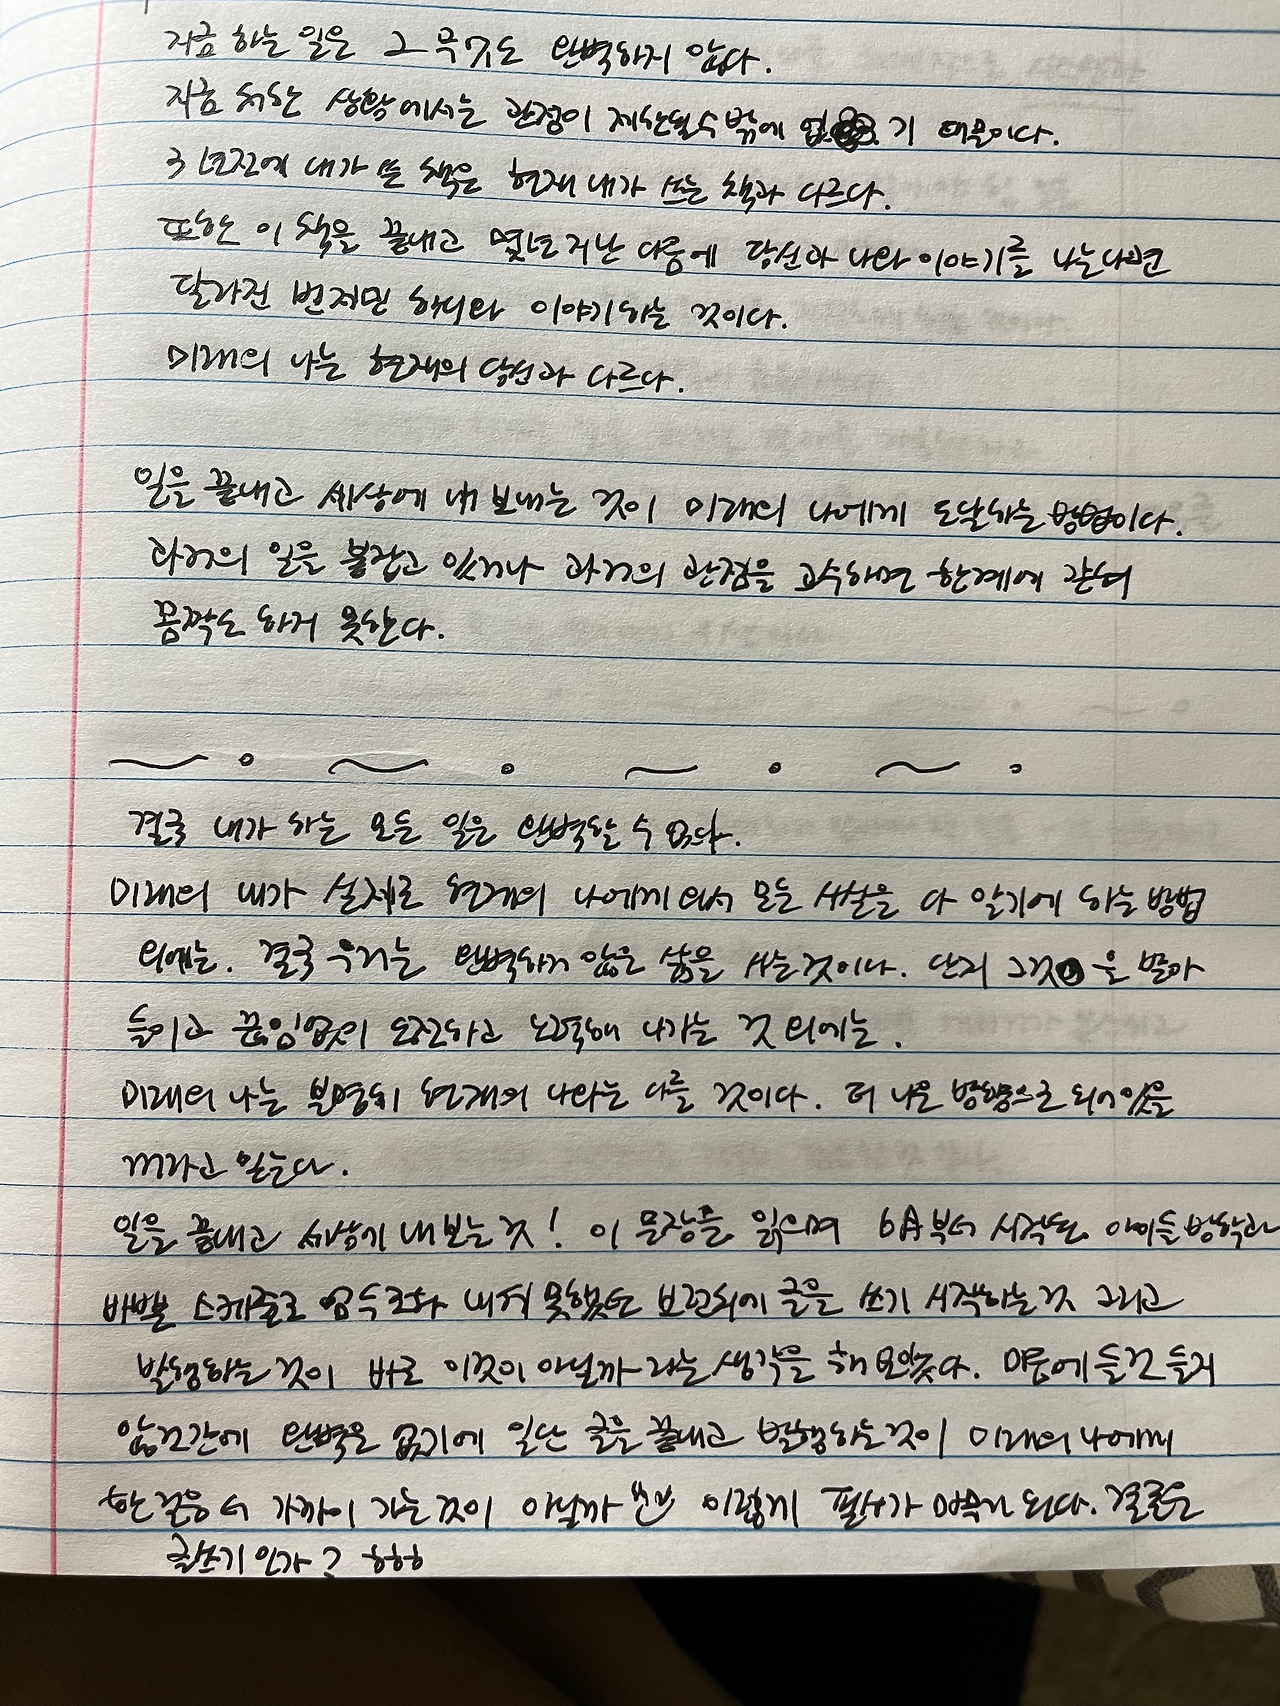 지금 하는 일은 그 무엇도 완벽하지 않다.
지금 처한 상황에서는 관점이 제한될수 밖에 없기 때문이다.
3년전에 내가 쓴 책은 현재 내가 쓰는 책과 다르다.
또한 이 책을 끝내고 몇년 지난 다음에 당신과 나와 이야기를 나눈다면
달라진 벤저민 하디와 이야기하는 것이다.
미래의 나는 현재의 당신과 다르다.
일을 끝내고 세상에 내보내는 것이 미래의 나에게 도달하는 방법이다.
과거의 일을 붙잡고 있거나 과거의 관점을 고수하면 한계에 갇혀
꼼짝도 하지 못한다.
결국 내가 하는 모든 일은 완벽할 수 없다.
미래의 내가 실제로 현재의 나에게 와서 모든 사실을 다 알기에 하는 방법
외에는. 결국 우리는 완벽하지 않은 삶을 사는것이다. 단지 그것을 받아
들이고 끊임없이 도전하고 노력해 나가는 것 외에는.
미래의 나는 분명히 현재의 나와는 다를 것이다. 더 나은 방향으로 되어있을
거라고 믿는다.
일을 끝내고 세상에 내보는 것! 이 문장을 읽으며 6월부터 시작된 아이들 방학과
바쁜 스케줄로 엄두조차 내지 못했던 브런치에 글을 쓰기 시작하는것 그리고
발행하는 것이 바로 이것이 아닐까 라는 생각을 해 보았다. 마음에 들건 들지
않건간에 완벽은 없기에 일단 글을 끝내고 발행하는것이 미래의 나에게
한걸음 더 가까이 가는것이 아닐까 이렇게 필사가 마무리 된다. 결론은
글쓰기인가? ㅎㅎㅎ